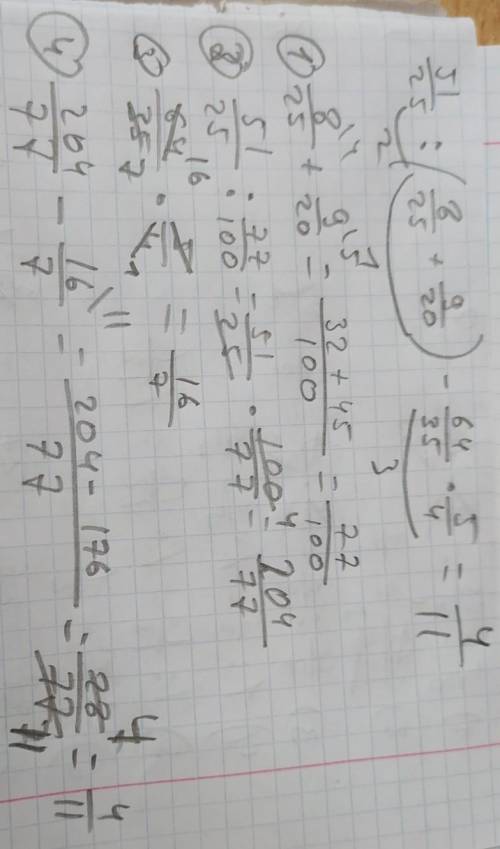 51/25 : (8/25 + 9/20) - 64/35 · 5/4 = 4/11
2 3
① 8/25 \4 + 9/20 \5 = 32 + 45/100 = 77/100
② 51/25 : 77/100 = 51/25 · 100/77 4 = 204/77
③ 64/35 16 7 · 5/4 1 = 16/7
④ 204/77 - 16/7 \11 = 204 - 176/77 = 28/77 4 11 = 4/11